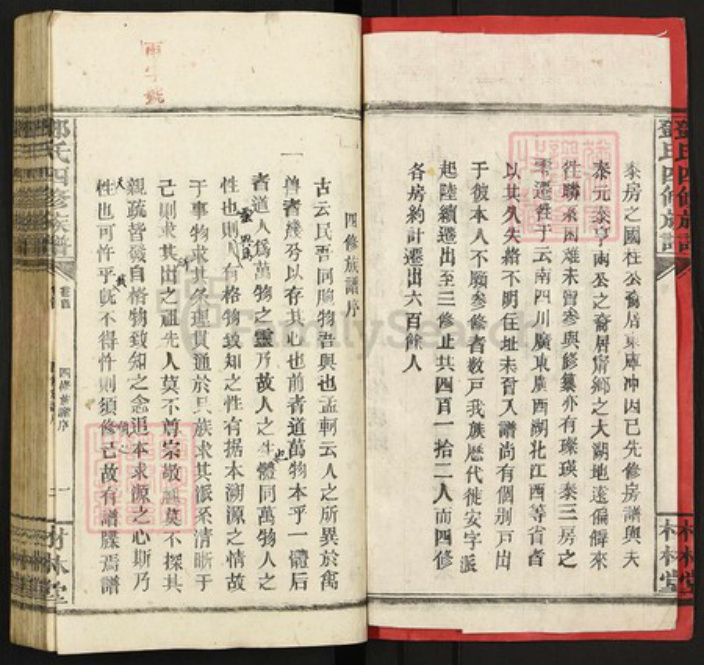 鄧氏四修族譜
泰房之國柱公裔居東庫冲因已先修房譜與夫
泰元泰亨兩公之裔居甯鄉之大湖地遠偏僻來
往聯系困难未曾参與修纂亦有璨瑛泰三房之
零遷往于云南四川廣東廣西湖北江西等省者
以其久失絡不明住址未曾入譜尚有個别戸出
于彼本人不願参修者数戸我族歴代徙安字派
起陸續遷出至三修止共四百一拾二人而四修
各房約計遷出六百餘人
材林堂
四修族譜序
古云民吾同胞物吾與也孟軻云人之所異於禽
獸者幾希以存其心也前者道萬物本乎一體后
者道人爲萬物之靈乃故人之生體同萬物人之
性也則人有格物致知之性有据本溯源之情故
于事物求其条理貫通於民族求其派系清晰于
己則求其出之祖先人莫不尊宗敬祖莫不探其
親疏皆發自格物致知之念追本求源之心斯乃
天性也可忤乎既不得忤則須修之故有譜牒焉譜
鄧氏四修族譜
卷首
四修族譜序
一
材林堂
FamilySearch